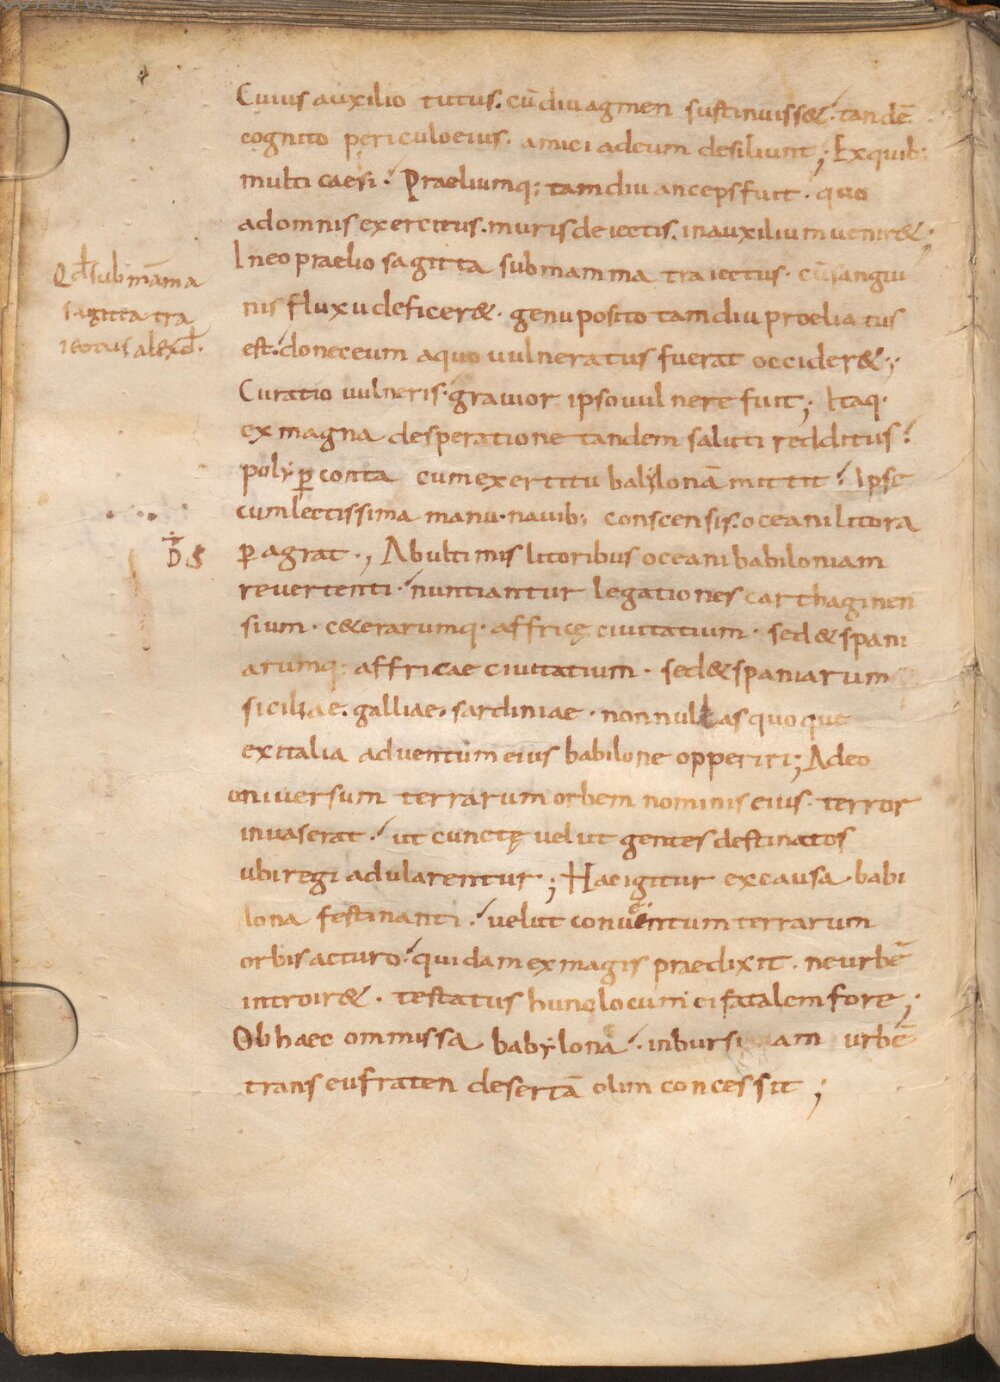 Cuius auxilio tutus. cū diu agmen sustinuiss&. tandē
cognito periculo eius. amici ad eum desiliunt; Ex quib:
multi caesi. Praeliumq; tam diu anceps fuit. quo
ad omnis exercitus. muris deiectis. in auxilium uenir&;
In eo praelio sagitta sub mamma traiectus. cū sangui
nis fluxu deficer&. genu posito tam diu proeliatus
est. donec eum a quo uulneratus fuerat occider&;
Curatio uulneris. grauior ipso uulnere fuit; Itaq.
ex magna desperatione tandem saluti redditus.
polyꝑconta cum exertitu babylonā mittit. Ipse
cum lectissima manu. nauib; conscensis. oceani litora
ꝑagrat., Ab ultimis litoribus oceani babiloniam
reuertenti. nuntiantur legationes carthaginen
sium. c&erarumq. affricę ciuitatium. sed & spani
arumq. affricae ciuitatium. sed & spaniarum
siciliae. galliae. sardiniae. nonnullas quoque
ex italia aduentum eius babilone opperiri; Adeo
uniuersum terrarum orbem nominis eius. terror
inuaserat. ut cunctę uelut gentes destinatos
ubi regi adularentur; Hac igitur ex causa babi
lona festinanti. uelut conuentum terrarum
orbis acturo. quidam ex magis praedixit. ne urbē
introir&. testatus hunc locum ei fatalem fore;
Ob haec ommissa babylona. in bursiam urbē
trans eufraten desertā olim concessit;
Qđ sub mām̄a
sagitta tra
iectus alexđ.
D S